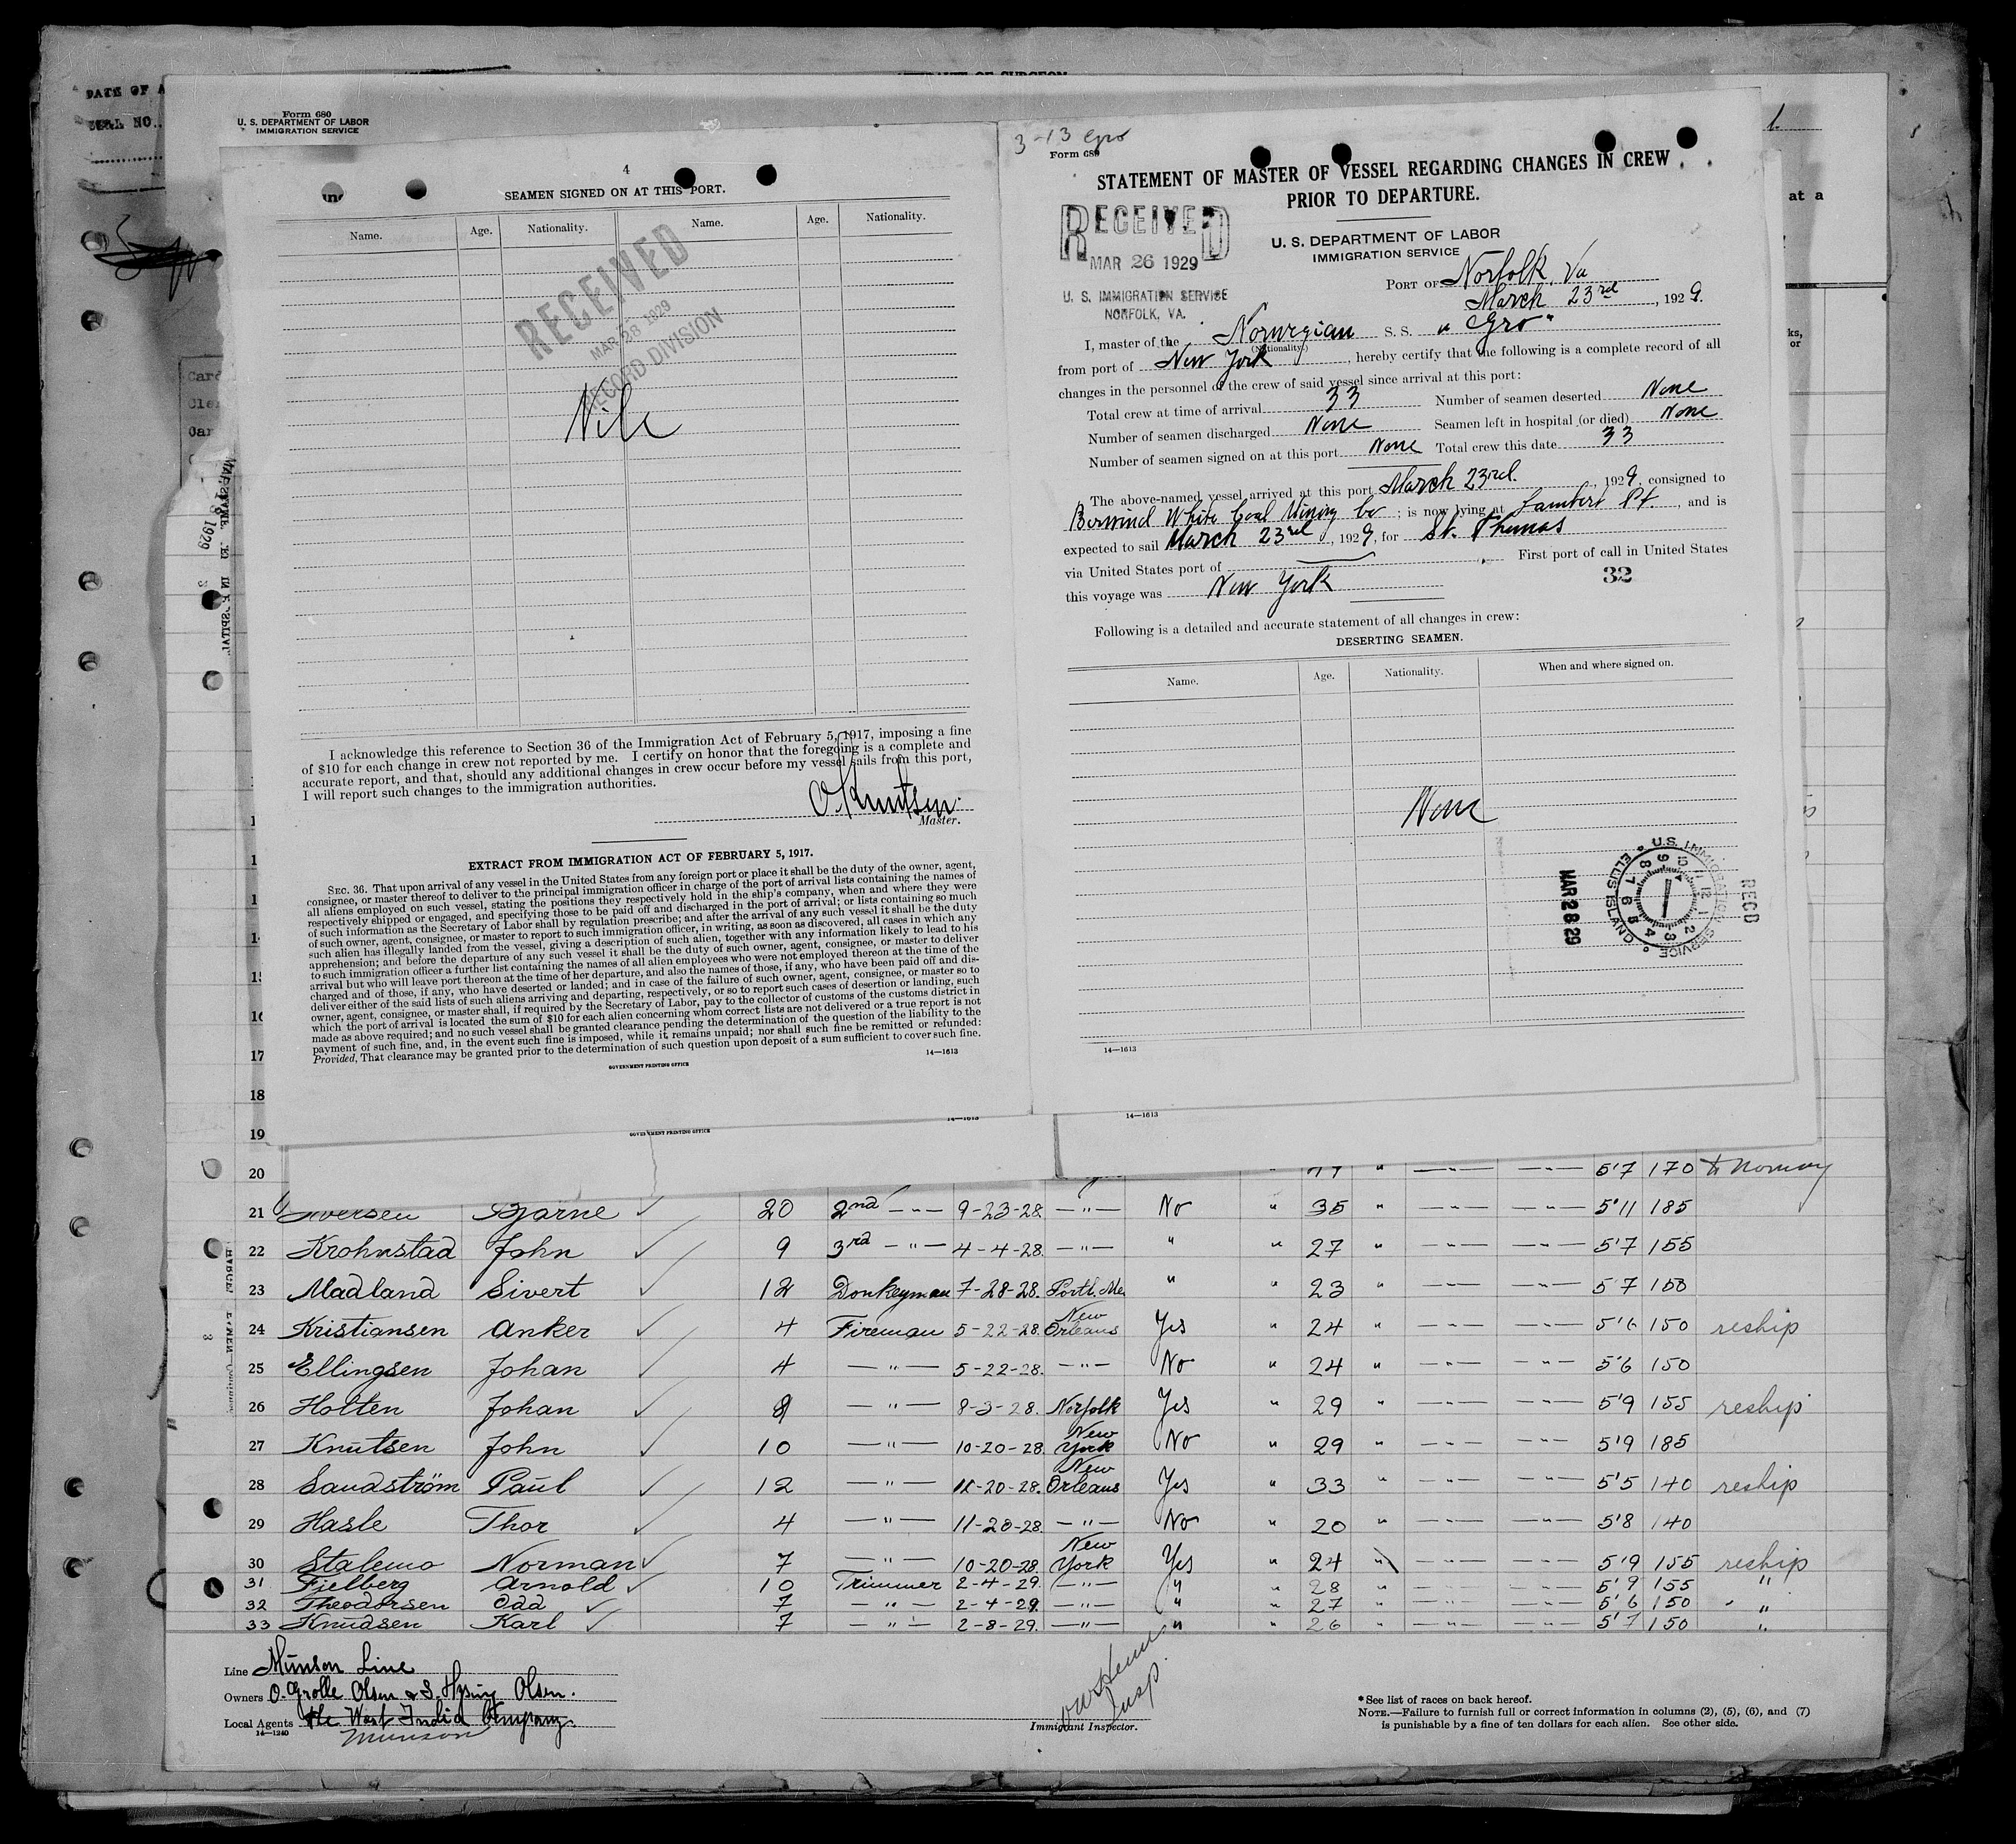 DATE OF A
NO.
Form 680
U. S. DEPARTMENT OF LABOR
IMMIGRATION SERVICE
4
SEAMEN SIGNED ON AT THIS PORT.
Name. Age. Nationality. Name. Age. Nationality.
RECEIVED
MAR 28 1929
RECORD DIVISION
Nile
I acknowledge this reference to Section 36 of the Immigration Act of February 5, 1917, imposing a fine
of $10 for each change in crew not reported by me. I certify on honor that the foregoing is a complete and
accurate report, and that, should any additional changes in crew occur before my vessel sails from this port,
I will report such changes to the immigration authorities.
O. Knutsen.
Master.
EXTRACT FROM IMMIGRATION ACT OF FEBRUARY 5, 1917.
SEC. 36. That upon arrival of any vessel in the United States from any foreign port or place it shall be the duty of the owner, agent,
consignee, or master thereof to deliver to the principal immigration officer in charge of the port of arrival lists containing the names of
all aliens employed on such vessel, stating the positions they respectively hold in the ship's company, when and where they were
respectively shipped or engaged, and specifying those to be paid off and discharged in the port of arrival; or lists containing so much
of such information as the Secretary of Labor shall by regulation prescribe; and after the arrival of any such vessel it shall be the duty
of such owner, agent, consignee, or master to report to such immigration officer, in writing, as soon as discovered, all cases in which any
such alien has illegally landed from the vessel, giving a description of such alien, together with any information likely to lead to his
apprehension; and before the departure of any such vessel it shall be the duty of such owner, agent, consignee, or master to deliver
to such immigration officer a further list containing the names of all alien employees who were not employed thereon at the time of the
arrival but who will leave port thereon at the time of her departure, and also the names of those, if any, who have been paid off and dis-
charged and of those, if any, who have deserted or landed; and in case of the failure of such owner, agent, consignee, or master so to
deliver either of the said lists of such aliens arriving and departing, respectively, or so to report such cases of desertion or landing, such
owner, agent, consignee, or master shall, if required by the Secretary of Labor, pay to the collector of customs of the customs district in
which the port of arrival is located the sum of $10 for each alien concerning whom correct lists are not delivered or a true report is not
made as above required; and no such vessel shall be granted clearance pending the determination of the question of the liability to the
payment of such fine, and, in the event such fine is imposed, while it remains unpaid; nor shall such fine be remitted or refunded:
Provided, That clearance may be granted prior to the determination of such question upon deposit of a sum sufficient to cover such fine.
14—1613
GOVERNMENT PRINTING OFFICE
14—1613
GOVERNMENT PRINTING OFFICE
3-13 Gro
Form 680
STATEMENT OF MASTER OF VESSEL REGARDING CHANGES IN CREW
PRIOR TO DEPARTURE.
RECEIVED
MAR 26 1929
U. S. IMMIGRATION SERVICE
NORFOLK, VA.
U. S. DEPARTMENT OF LABOR
IMMIGRATION SERVICE
PORT OF Norfolk, Va
March 23rd, 1929.
I, master of the Norwegian S. S. "Gro"
(Nationality.)
from port of New York, hereby certify that the following is a complete record of all
changes in the personnel of the crew of said vessel since arrival at this port:
Total crew at time of arrival 33 Number of seamen deserted None
Number of seamen discharged None Seamen left in hospital (or died) None
Number of seamen signed on at this port None Total crew this date 33
The above-named vessel arrived at this port March 23rd., 1929, consigned to
Berwind White Coal Mining Co; is now lying at Lambert Pt., and is
expected to sail March 23rd, 1929, for St. Thomas
via United States port of First port of call in United States
this voyage was New York 32
Following is a detailed and accurate statement of all changes in crew:
DESERTING SEAMEN.
Name. Age. Nationality. When and where signed on.
None
MAR 28 29
U.S. IMMIGRATION SERVICE ELLIS ISLAND
REC'D
14—1613
14—1613
at a
17
18
19
20 " — " — — " — 5'7 170 to Norway
21 Iversen Bjarne 20 2nd — " — 9-23-28. — " — No " 35 " — " — — " — 5'11 185
22 Krohnstad John 9 3rd — " — 4-4-28. — " — " " 27 " — " — — " — 5'7 155
23 Madland Sivert 12 Donkeyman 7-28-28. Portl. Me. " " 23 " — " — — " — 5 7 160
24 Kristiansen Anker 4 Fireman 5-22-28. New Orleans Yes " 24 " — " — — " — 5'6 150 reship
25 Ellingsen Johan 4 — " — 5-22-28. — " — No " 24 " — " — — " — 5'6 150
26 Holten Johan 8 — " — 8-3-28. Norfolk Yes " 29 " — " — — " — 5'9 155 reship
27 Knutsen John 10 — " — 10-20-28. New York No " 29 " — " — — " — 5'9 185
28 Sandström Paul 12 — " — 11-20-28. New Orleans Yes " 33 " — " — — " — 5'5 140 reship
29 Hasle Thor 4 — " — 11-20-28. — " — No " 20 " — " — — " — 5'8 140
30 Stalemo Norman 7 — " — 10-20-28. New York Yes " 24 " — " — — " — 5'9 155 reship
31 Fjelberg Arnold 10 Trimmer 2-4-29. — " — " " 28 " — " — — " — 5'9 155 "
32 Theodorsen Odd 7 — " — 2-4-29. — " — " " 27 " — " — — " — 5'6 150 "
33 Knudsen Karl 7 — " — 2-8-29. — " — " " 26 " — " — — " — 5'7 150 "
Line Munson Line
Owners O. Grolle Olsen & S. Hysing Olsen.
Local Agents The West India Company.
14—1240
Munson
Insp.
Immigrant Inspector.
*See list of races on back hereof.
NOTE.—Failure to furnish full or correct information in columns (2), (5), (6), and (7)
is punishable by a fine of ten dollars for each alien. See other side.